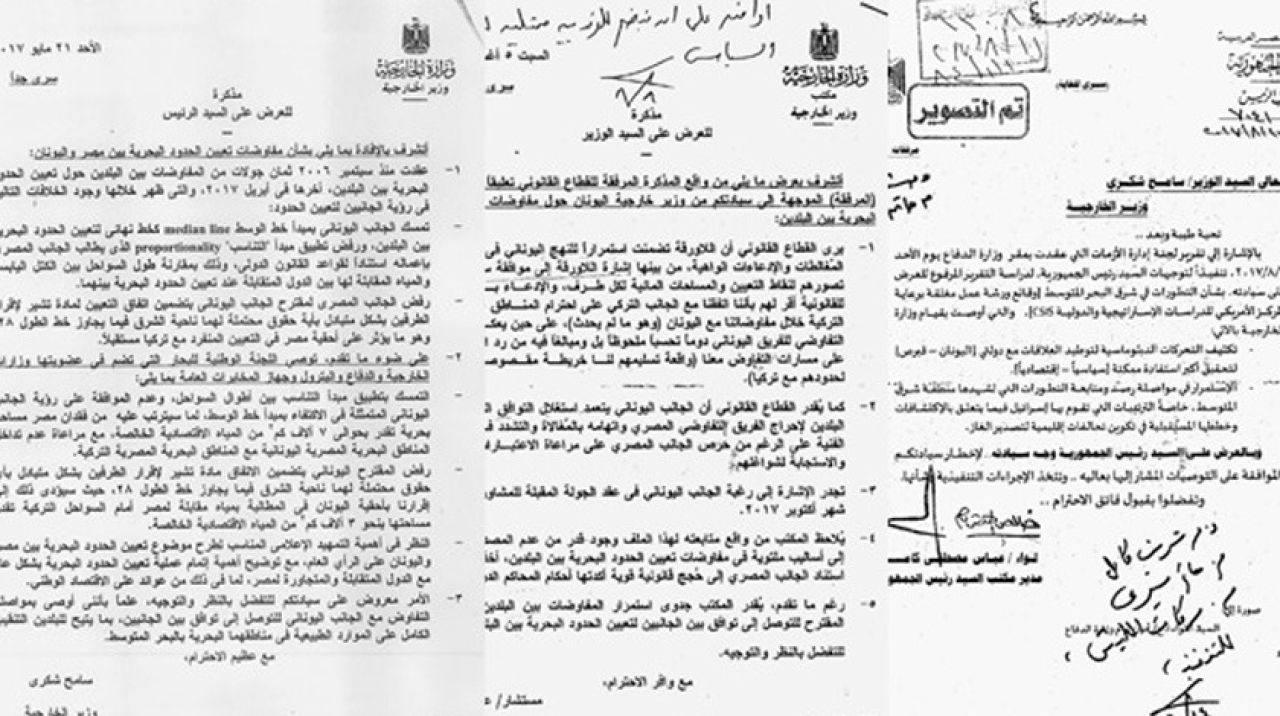 الأحد ٢١ مايو ٢٠١٧
وزارة الخارجية
وزير الخارجية
سرى جداً
مذكرة
للعرض على السيد الرئيس
أتشرف بالإفادة بما يلي بشأن مفاوضات تعيين الحدود البحرية بين مصر واليونان:
١- عقدت منذ سبتمبر ٢٠٠٦ ثمان جولات من المفاوضات بين البلدين حول تعيين الحدود
البحرية بين البلدين، آخرها فى أبريل ٢٠١٧، والتى ظهر خلالها وجود الخلافات التالية
فى رؤية الجانبين لتعيين الحدود:
تمسك الجانب اليونانى بمبدأ خط الوسط median line كخط نهائى لتعيين الحدود البحرية
بين البلدين، ورفض تطبيق مبدأ "التناسب" proportionality الذى يطالب الجانب المصرى
بإعماله استناداً لقواعد القانون الدولى، وذلك بمقارنة طول السواحل بين الكتل اليابسة
والمياه المقابلة لها بين الدول المتقابلة عند تعيين الحدود البحرية بينهما.
رفض الجانب المصرى لمقترح الجانب اليونانى بتضمين اتفاق التعيين لمادة تشير لإقرار
الطرفين بشكل متبادل بأية حقوق محتملة لهما ناحية الشرق فيما يجاوز خط الطول ٢٨
وهو ما يؤثر على أحقية مصر فى التعيين المنفرد مع تركيا مستقبلاً.
٢- على ضوء ما تقدم، توصى اللجنة الوطنية للبحار التى تضم فى عضويتها وزارات
الخارجية والدفاع والبترول وجهاز المخابرات العامة بما يلى:
- التمسك بتطبيق مبدأ التناسب بين أطوال السواحل، وعدم الموافقة على رؤية الجانب
اليونانى المتمثلة فى الاكتفاء بمبدأ خط الوسط، لما سيترتب عليه من فقدان مصر مساحة
بحرية تقدر بحوالى ٧ آلاف كم٢ من المياه الاقتصادية الخالصة، مع مراعاة عدم تداخل
المناطق البحرية المصرية اليونانية مع المناطق البحرية المصرية التركية.
- رفض المقترح اليونانى بتضمين الاتفاق مادة تشير لإقرار الطرفين بشكل متبادل بأية
حقوق محتملة لهما ناحية الشرق فيما يجاوز خط الطول ٢٨، حيث سيؤدى ذلك إلى
إقرارنا بأحقية اليونان فى المطالبة بمياه مقابلة لمصر أمام السواحل التركية تقدر
مساحتها بنحو ٣ آلاف كم٢ من المياه الاقتصادية الخالصة.
- النظر فى أهمية التمهيد الإعلامى المناسب لطرح موضوع تعيين الحدود البحرية بين مصر
واليونان على الرأى العام، مع توضيح أهمية إتمام عملية تعيين الحدود البحرية بشكل عام
مع الدول المتقابلة والمتجاورة لمصر، لما فى ذلك من عوائد على الاقتصاد الوطنى.
٣- الأمر معروض على سيادتكم للتفضل بالنظر والتوجيه، علماً بأننى أوصى بمواصلة
التفاوض مع الجانب اليونانى للتوصل إلى توافق بين الجانبين، بما يتيح للبلدين التنقيب
الكامل على الموارد الطبيعية فى مناطقهما البحرية بالبحر المتوسط.
مع عظيم الاحترام،
سامح شكرى
وزير الخارجية
السبت ٥
وزارة الخارجية
مكتب
وزير الخارجية
سرى
٨/٨
مذكرة
للعرض على السيد الوزير
أتشرف بعرض ما يلى من واقع المذكرة المرفقة للقطاع القانونى تعليقا
(المرفقة) الموجهة إلى سيادتكم من وزير خارجية اليونان حول مفاوضات
البحرية بين البلدين:
١- يرى القطاع القانونى أن اللاورقة تضمنت استمراراً للنهج اليونانى فى
المغالطات والإدعاءات الواهية، من بينها إشارة اللاورقة إلى موافقة
تصورهم لنقاط التعيين والمساحات المائية لكل طرف، والإدعاء
للقانونية أقر لهم بأننا اتفقنا مع الجانب التركى على احترام المناطق
التركية خلال مفاوضاتنا مع اليونان (وهو ما لم يحدث)، على حين
التفاوضى للفريق اليونانى دوماً تحسباً ملحوظاً بل ومبالغاً فيه من رد
على مسارات التفاوض معنا (واقعة تسليمهم لنا خريطة مقصوصة
لحدودهم مع تركيا).
٢- كما يُقدر القطاع القانونى أن الجانب اليونانى يتعمد استغلال التوافق
البلدين لإحراج الفريق التفاوضى المصرى واتهامه بالمغالاة والتشدد
الفنية على الرغم من حرص الجانب المصرى على مراعاة الاعتبارات
والاستجابة لشواغلهم.
٣- تجدر الإشارة إلى رغبة الجانب اليونانى فى عقد الجولة المقبلة للمشاورات
شهر أكتوبر ٢٠١٧.
٤- يُلاحظ المكتب من واقع متابعته لهذا الملف وجود قدر من عدم
إلى أساليب ملتوية فى مفاوضات تعيين الحدود البحرية بين البلدين،
استناد الجانب المصرى إلى حُجج قانونية قوية أكدتها أحكام المحاكم
٥- رغم ما تقدم، يُقدر المكتب جدوى استمرار المفاوضات بين البلدين
المقترح للتوصل إلى توافق بين الجانبين لتعيين الحدود البحرية بين
للتفضل بالنظر والتوجيه.
مع وافر الاحترام،
مستشار/
بسم الله الرحمن الرحيم
سرى للغاية
تم التصوير
معالى السيد الوزير/ سامح شكرى
وزير الخارجية
تحية طيبة وبعد ..
بالإشارة إلى تقرير لجنة إدارة الأزمات التى عقدت بمقر وزارة الدفاع يوم الأحد
٢٠١٧/٨/ تنفيذاً لتوجيهات السيد رئيس الجمهورية، لدراسة التقرير المرفوع للعرض
على سيادته، بشأن التطورات فى شرق البحر المتوسط [وقائع ورشة عمل مغلقة برعاية
المركز الأمريكى للدراسات الإستراتيجية والدولية CSIS]، والتى أوصت بقيام وزارة
الخارجية بالآتى:
- تكثيف التحركات الدبلوماسية لتوطيد العلاقات مع دولتى [اليونان - قبرص]
لتحقيق أكبر استفادة ممكنة [سياسياً - إقتصادياً].
- الإستمرار فى مواصلة رصد ومتابعة التطورات التى تشهدها منطقة شرق
المتوسط، خاصة الترتيبات التى تقوم بها إسرائيل فيما يتعلق بالإكتشافات
وخططها المستقبلية فى تكوين تحالفات إقليمية لتصدير الغاز.
وبالعرض على السيد رئيس الجمهورية وجه سيادته، لإخطار سيادتكم
بالموافقة على التوصيات المشار إليها بعاليه .. وتتخذ الإجراءات التنفيذية بشأنها.
وتفضلوا بقبول فائق الاحترام ..
لواء/ عباس مصطفى كامل
مدير مكتب السيد رئيس الجمهورية
صورة